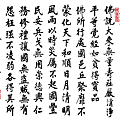 佛說大乘無量壽莊嚴清淨
平等覺經如貧得寶品
佛所行處國邑丘聚靡不
蒙化天下和順日月清明
風雨以時災厲不起國豐
民安兵戈無用崇德興仁
務修禮讓國無盜賊無有
怨枉強不凌弱各得其所